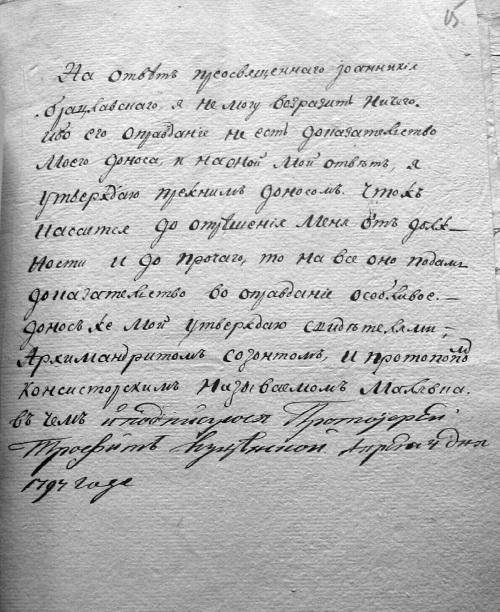 15.
На отвѣтъ преосвященнаго Іоанникія
Брацлавскаго я не могу возразить ничего.
ибо его оправданіе не есть доказательство
моего доноса, и на оной мой отвѣтъ, я
утверждаю прежнимъ доносомъ. Что къ
касаится до отрѣшенія меня отъ долж-
ности и до прочаго, то на все оно подамъ
доказательство во оправданіе особливое.—
доносъ же мой утверждаю свидѣтелями,
Архимандритомъ Созонтомъ, и протопопомъ
консисторскимъ называемомъ
въ чемъ и подписуюся Протоіерей
Трофимъ Апреля 4 дня
1797 года